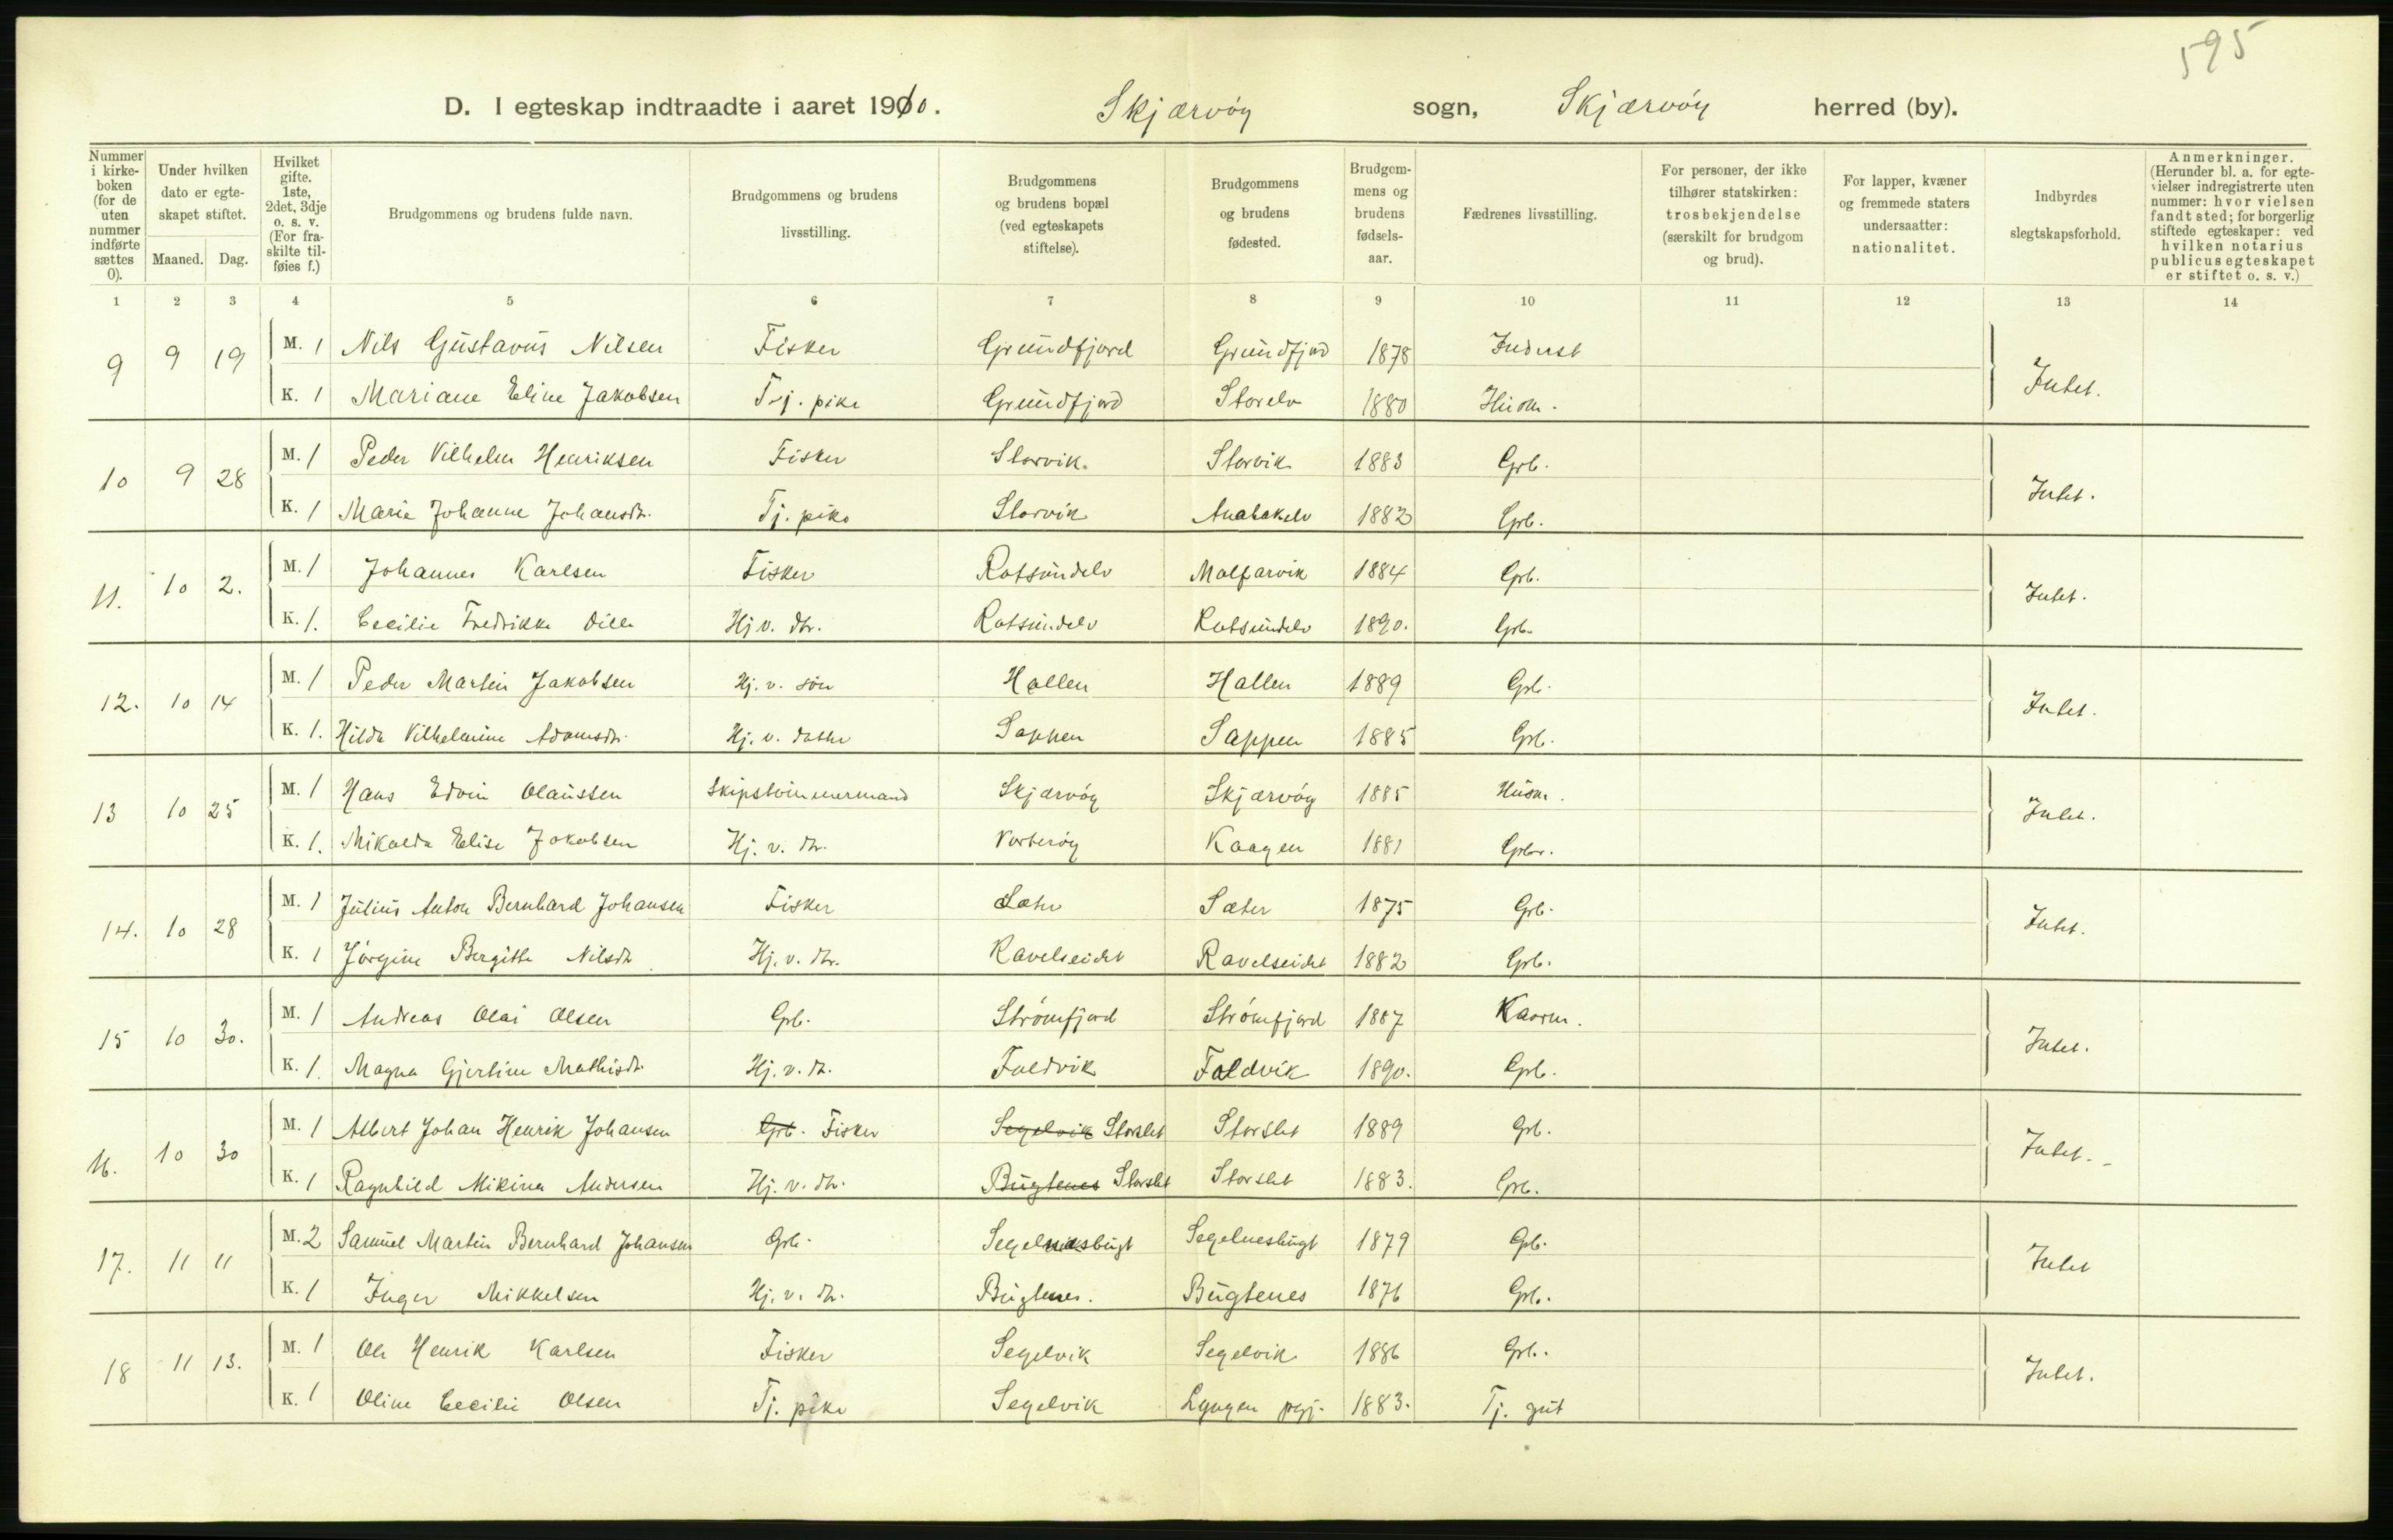 595
D. I egteskap indtraadte i aaret 1910. Skjærvöy sogn, Skjærvöy herred (by).
Nummer i kirke-boken (for de uten nummer indførte sættes 0). Under hvilken dato er egte-skapet stiftet. Maaned. Dag. Hvilket gifte. 1ste, 2det, 3dje o. s. v. (For fra-skilte til-føies f.) Brudgommens og brudens fulde navn. Brudgommens og brudens livsstilling. Brudgommens og brudens bopæl (ved egteskapets stiftelse). Brudgommens og brudens fødested. Brudgom-mens og brudens fødsels-aar. Fædrenes livsstilling. For personer, der ikke tilhører statskirken: trosbekjendelse (særskilt for brudgom og brud). For lapper, kvæner og fremmede staters undersaatter: nationalitet. Indbyrdes slegtskapsforhold. Anmerkninger. (Herunder bl. a. for egte-vielser indregistrerte uten nummer: hvor vielsen fandt sted; for borgerlig stiftede egteskaper: ved hvilken notarius publicus egteskapet er stiftet o. s. v.)
1 2 3 4 5 6 7 8 9 10 11 12 13 14
9 9 19 M. 1 Nils Gustavus Nilsen Fisker Grundfjord Grundfjord 1878 Inderst Intet.
K. 1 Mariane Eline Jakobsen Tj. pike Grundfjord Storelv 1880 Husm.
10 9 28 M. 1 Peder Vilhelm Henriksen Fisker Storvik. Storvik 1883 Grb. Intet.
K. 1 Marie Johanne Johansdr. Tj. pike Storvik 1882 Grb.
11. 10 2. M. 1 Johannes Karlsen Fisker Rotsundelv Malparvik 1884 Grb. Intet.
K. 1. Cecilie Fredrikke Rotsundelv Rotsundelv 1890. Grb. Hj v. dtr.
12. 10 14 M. 1 Peder Martin Jakobsen Hj. v. sön Hallen Hallen 1889 Grb. Intet.
K. 1. Hilda Vilhelmine Adamsdr. Hj. v. datter Sappen Sappen 1885 Grb.
13 10 25 M. 1 Hans Edvin Olaussen Skipstömmermand Skjærvöy Skjærvöy 1885 Husm. Intet.
K. 1. Mikalda Elise Jakobsen Hj. v. dr. Vorteröy Kaagen 1881 Grbr.
14. 10 28 M. 1 Julius Anton Bernhard Johansen Fisker Sæter Sæter 1875 Grb. Intet.
K. 1 Jörgine Bergitte Nilsdr. Hj. v. dtr. Ravelseidet Ravelseidet 1882 Grb.
15 10 30. M. 1 Andreas Olai Olsen Grb. Strömfjord Strömfjord 1887 Kaarm. Intet.
K. 1. Magna Gjertine Mathisdr. Hj. v. dr. Faldvik Faldvik 1890. Grb.
16. 10 30 M. 1 Albert Johan Henrik Johansen Grb. Fisker Segelvik Storslet Storslet 1889 Grb. Intet. -
K. 1 Ragnhild Mikina Andersen Hj. v. dtr. Bugtenes Storslet Storslet 1883. Grb.
17. 11 11 M. 2 Samuel Martin Bernhard Johansen Grb. Segelnesbugt Segelnesbugt 1879 Grb. Intet
K. 1 Inger Mikkelsen Hj. v. dr. Bugtenes. Bugtenes 1876 Grb.
18 11 13. M. 1 Ole Henrik Karlsen Fisker Segelvik Segelvik 1886 Grb. Intet.
K. 1 Oline Cecilie Olsen Tj. pike Segelvik Lyngen pgj. 1883. Tj. gut